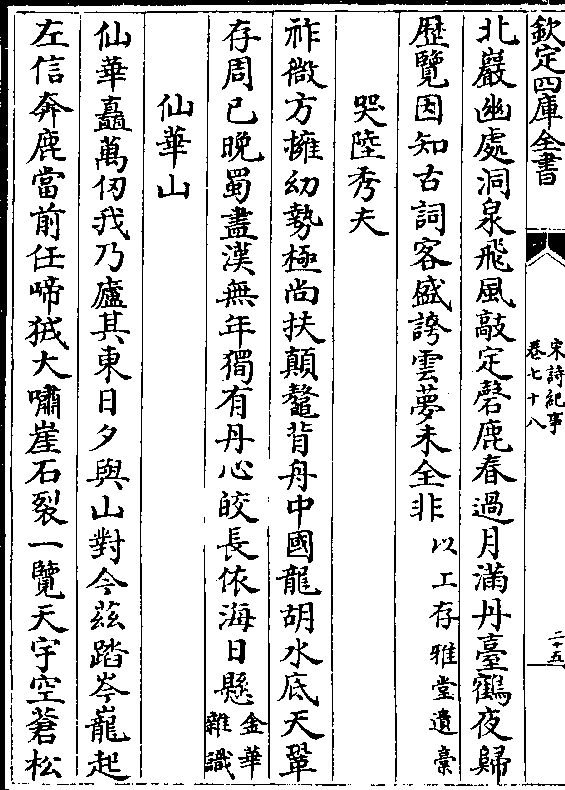 欽定四庫全書
宋詩紀事
卷七十八
二十五
北巖幽處洞泉飛風敲定磬鹿春過月滿丹臺鶴夜歸
歴覽因知古詞客盛誇雲夢未全非以工存雅堂遺藁
哭陸秀夫
祚微方擁幼勢極尚扶顛鼇背舟中國龍胡水底天鞏
存周已晚蜀盡漢無年獨有丹心皎長依海日懸金華
雜識
仙華山
仙華矗萬仞我乃廬其東日夕與山對今茲踏岑巃起
左信奔鹿當前任啼狨大嘯崖石裂一覽天宇空蒼松